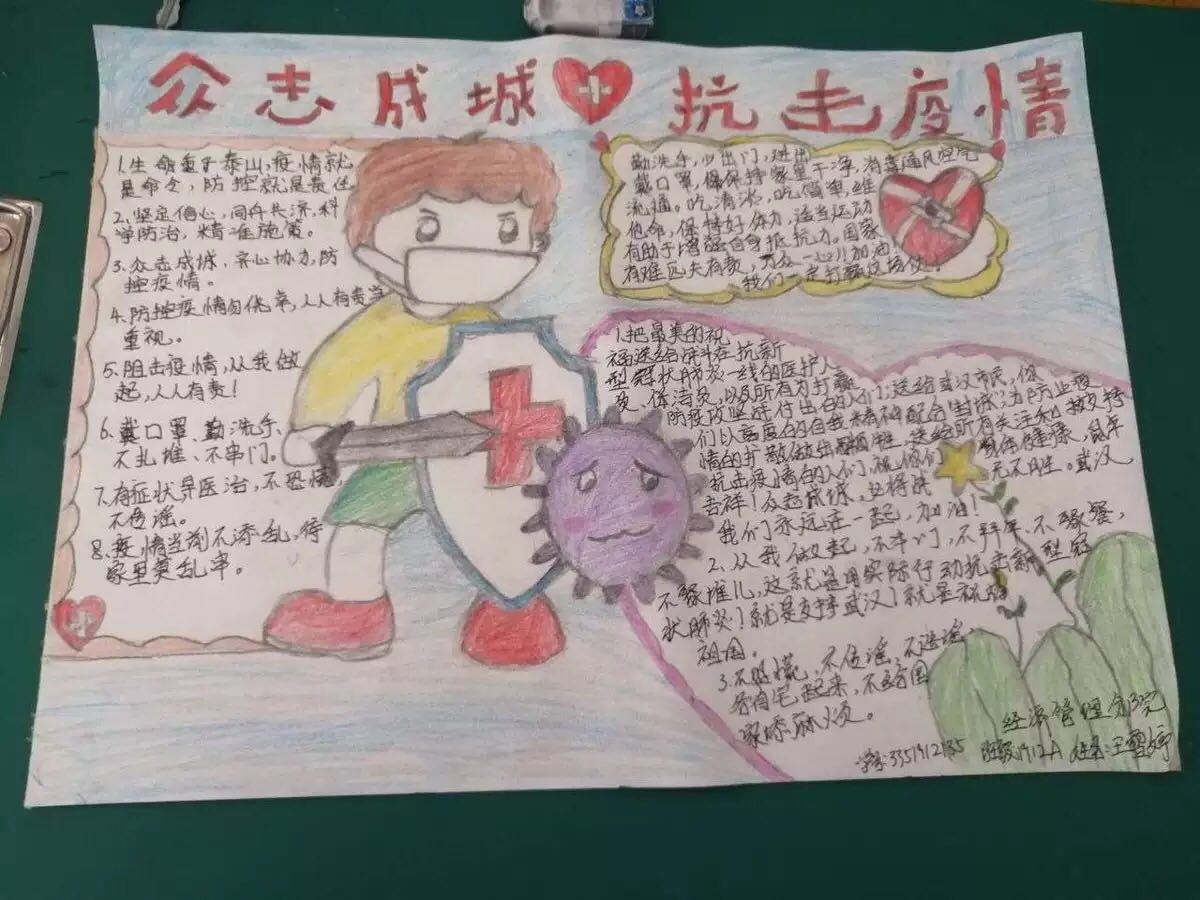 众志成城 抗击疫情
1.生命重于泰山,疫情就
是命令,防控就是责任
2.坚定信心,同舟共济,科
学防治,精准施策。
3.众志成城,齐心协力,防
控疫情。
4.防控疫情勿侥幸,人人有责当
重视。
5.阻击疫情,从我做
起,人人有责!
6.戴口罩、勤洗手、
不扎堆、不串门。
7.有症状早医治,不恐慌,
不传谣。
8.疫情当前不添乱,待
家里莫乱串。
勤洗手,少出门,进出
戴口罩,保持家里干净,消毒通风空气
流通。吃清淡,吃
保持好体力,适当运动
有助于增强自身抵抗力。国家
有难匹夫有责,万众一心!!加油!
我们一定打赢这场仗!
1.把最美的祝
福送给战斗在抗新
型冠状肺炎一线的医护人
员、保洁员,以及所有为打赢
防疫攻坚战付出的人们;送给武汉市民,你
们以高度的自我精神配合“封城”,为防止疫
情的扩散做出牺牲,送给所有关注和支持
抗击疫情的人们,祝你们身体健康,鼠年
吉祥!众志成城,
无不胜。武汉
我们永远在一起,加油!
2.从我做起,不串门,不拜年、不聚餐,
不聚堆儿,这就是用实际行动抗击新型冠
状肺炎!就是支持武汉!就是祝福
祖国。
3.不恐慌,不传谣,不造谣,
家里宅起来,不给国
家添麻烦。
经济管理学院
学号:3351912135 班级1912A 姓名:王雪婷